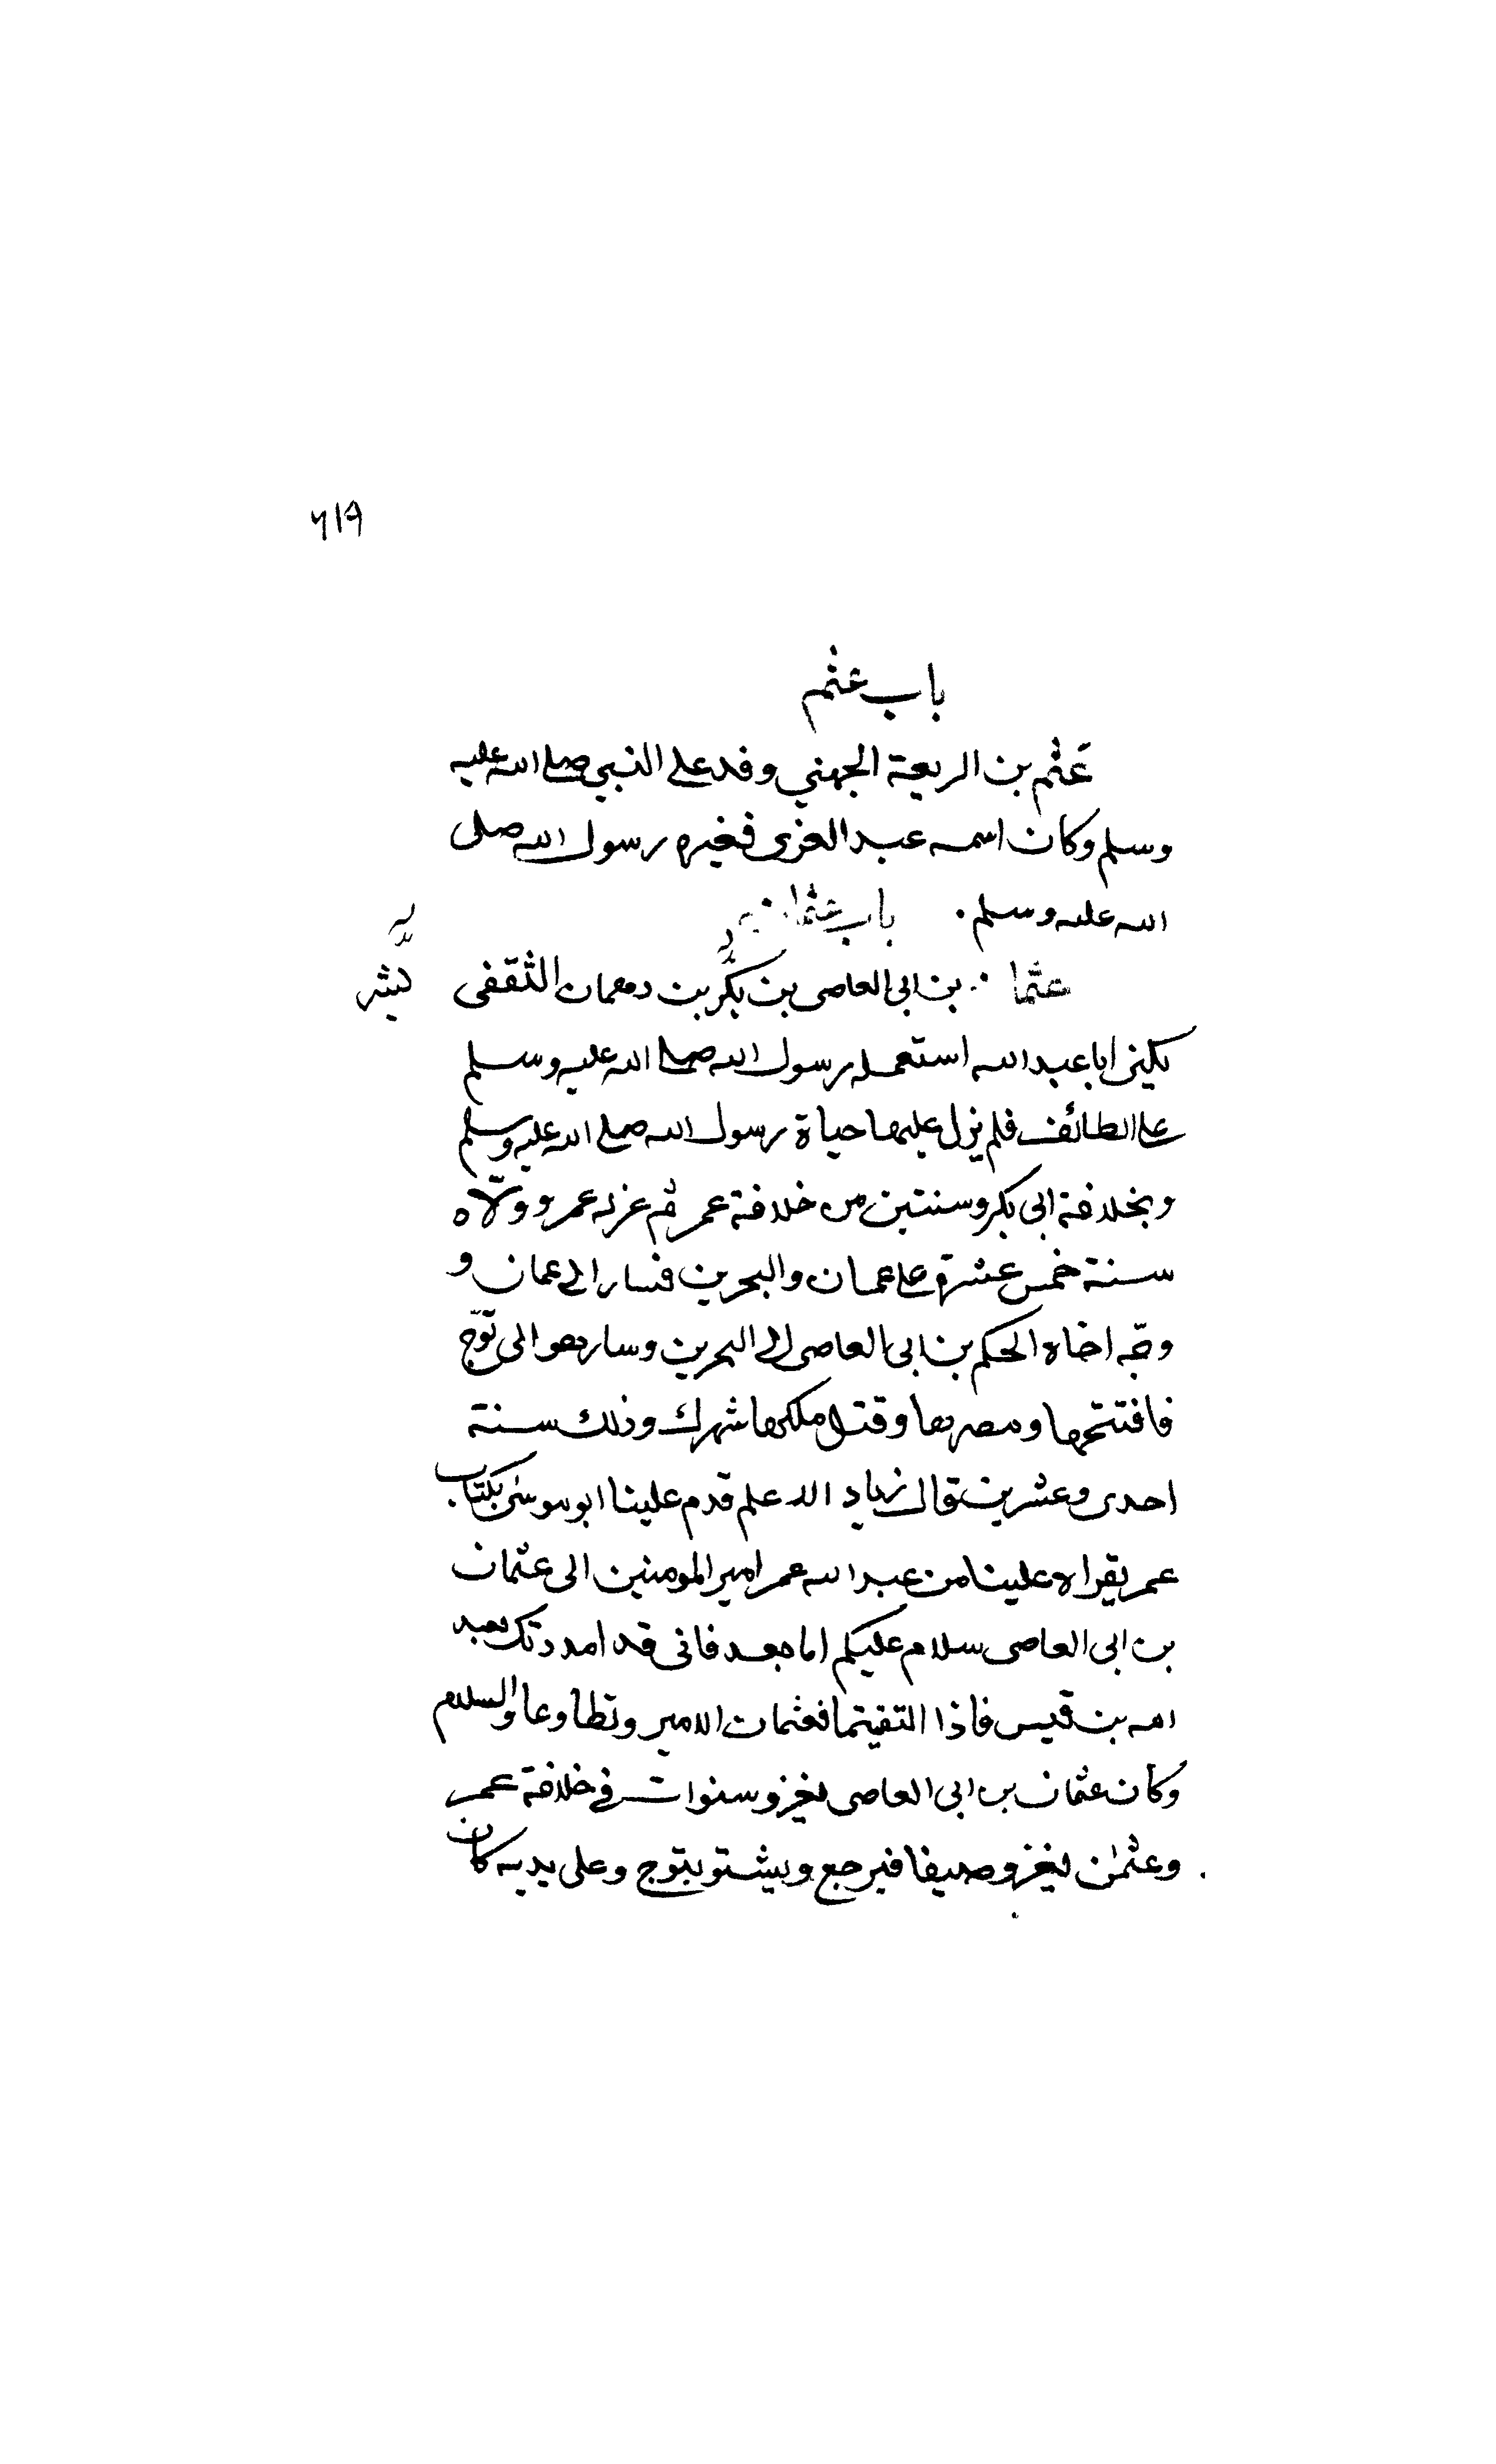 ٦١٩
باب عثم
عَثْم بن الربعة الجهني وفد على النبي صلى الله عليه
وسلم وكان اسمه عبد العزى فغيره رسول الله صلى
الله عليه وسلم . باب عثمان
عثمان بن ابى العاصى بن بكر بن دهمان الثقفى
يكنى ابا عبد الله استعمله رسول الله صلى الله عليه وسلم
على الطائف فلم يزل عليها حياة رسول الله صلى الله عليه وسلم
وبخلافة ابى بكر وسنتين من خلافة عمر ثم عزله عمر وولّاه
سنة خمس عشرة على عمان والبحرين فسار الى عمان و
وجّه اخاه الحكم بن ابى العاصى الى البحرين وسار هو الى توّج
فافتتحها ومصرها وقتل ملكها شهرك وذلك سنة
احدى وعشرين قال زياد الاعلم قدم علينا ابو موسى بكتاب
عمر يقراه علينا من عبد الله عمر امير المومنين الى عثمان
بن ابى العاصى سلام عليكم اما بعد فانى قد امددتك بعبد
الله بن قيس فاذا التقيتما فعثمان الامير وتطاوعا والسلام
وكان عثمان بن ابى العاصى يغزو سنوات في خلافة عمر
وعثمٰن يغزو صيفا فيرجع ويشتو بتوج وعلى يديه كان